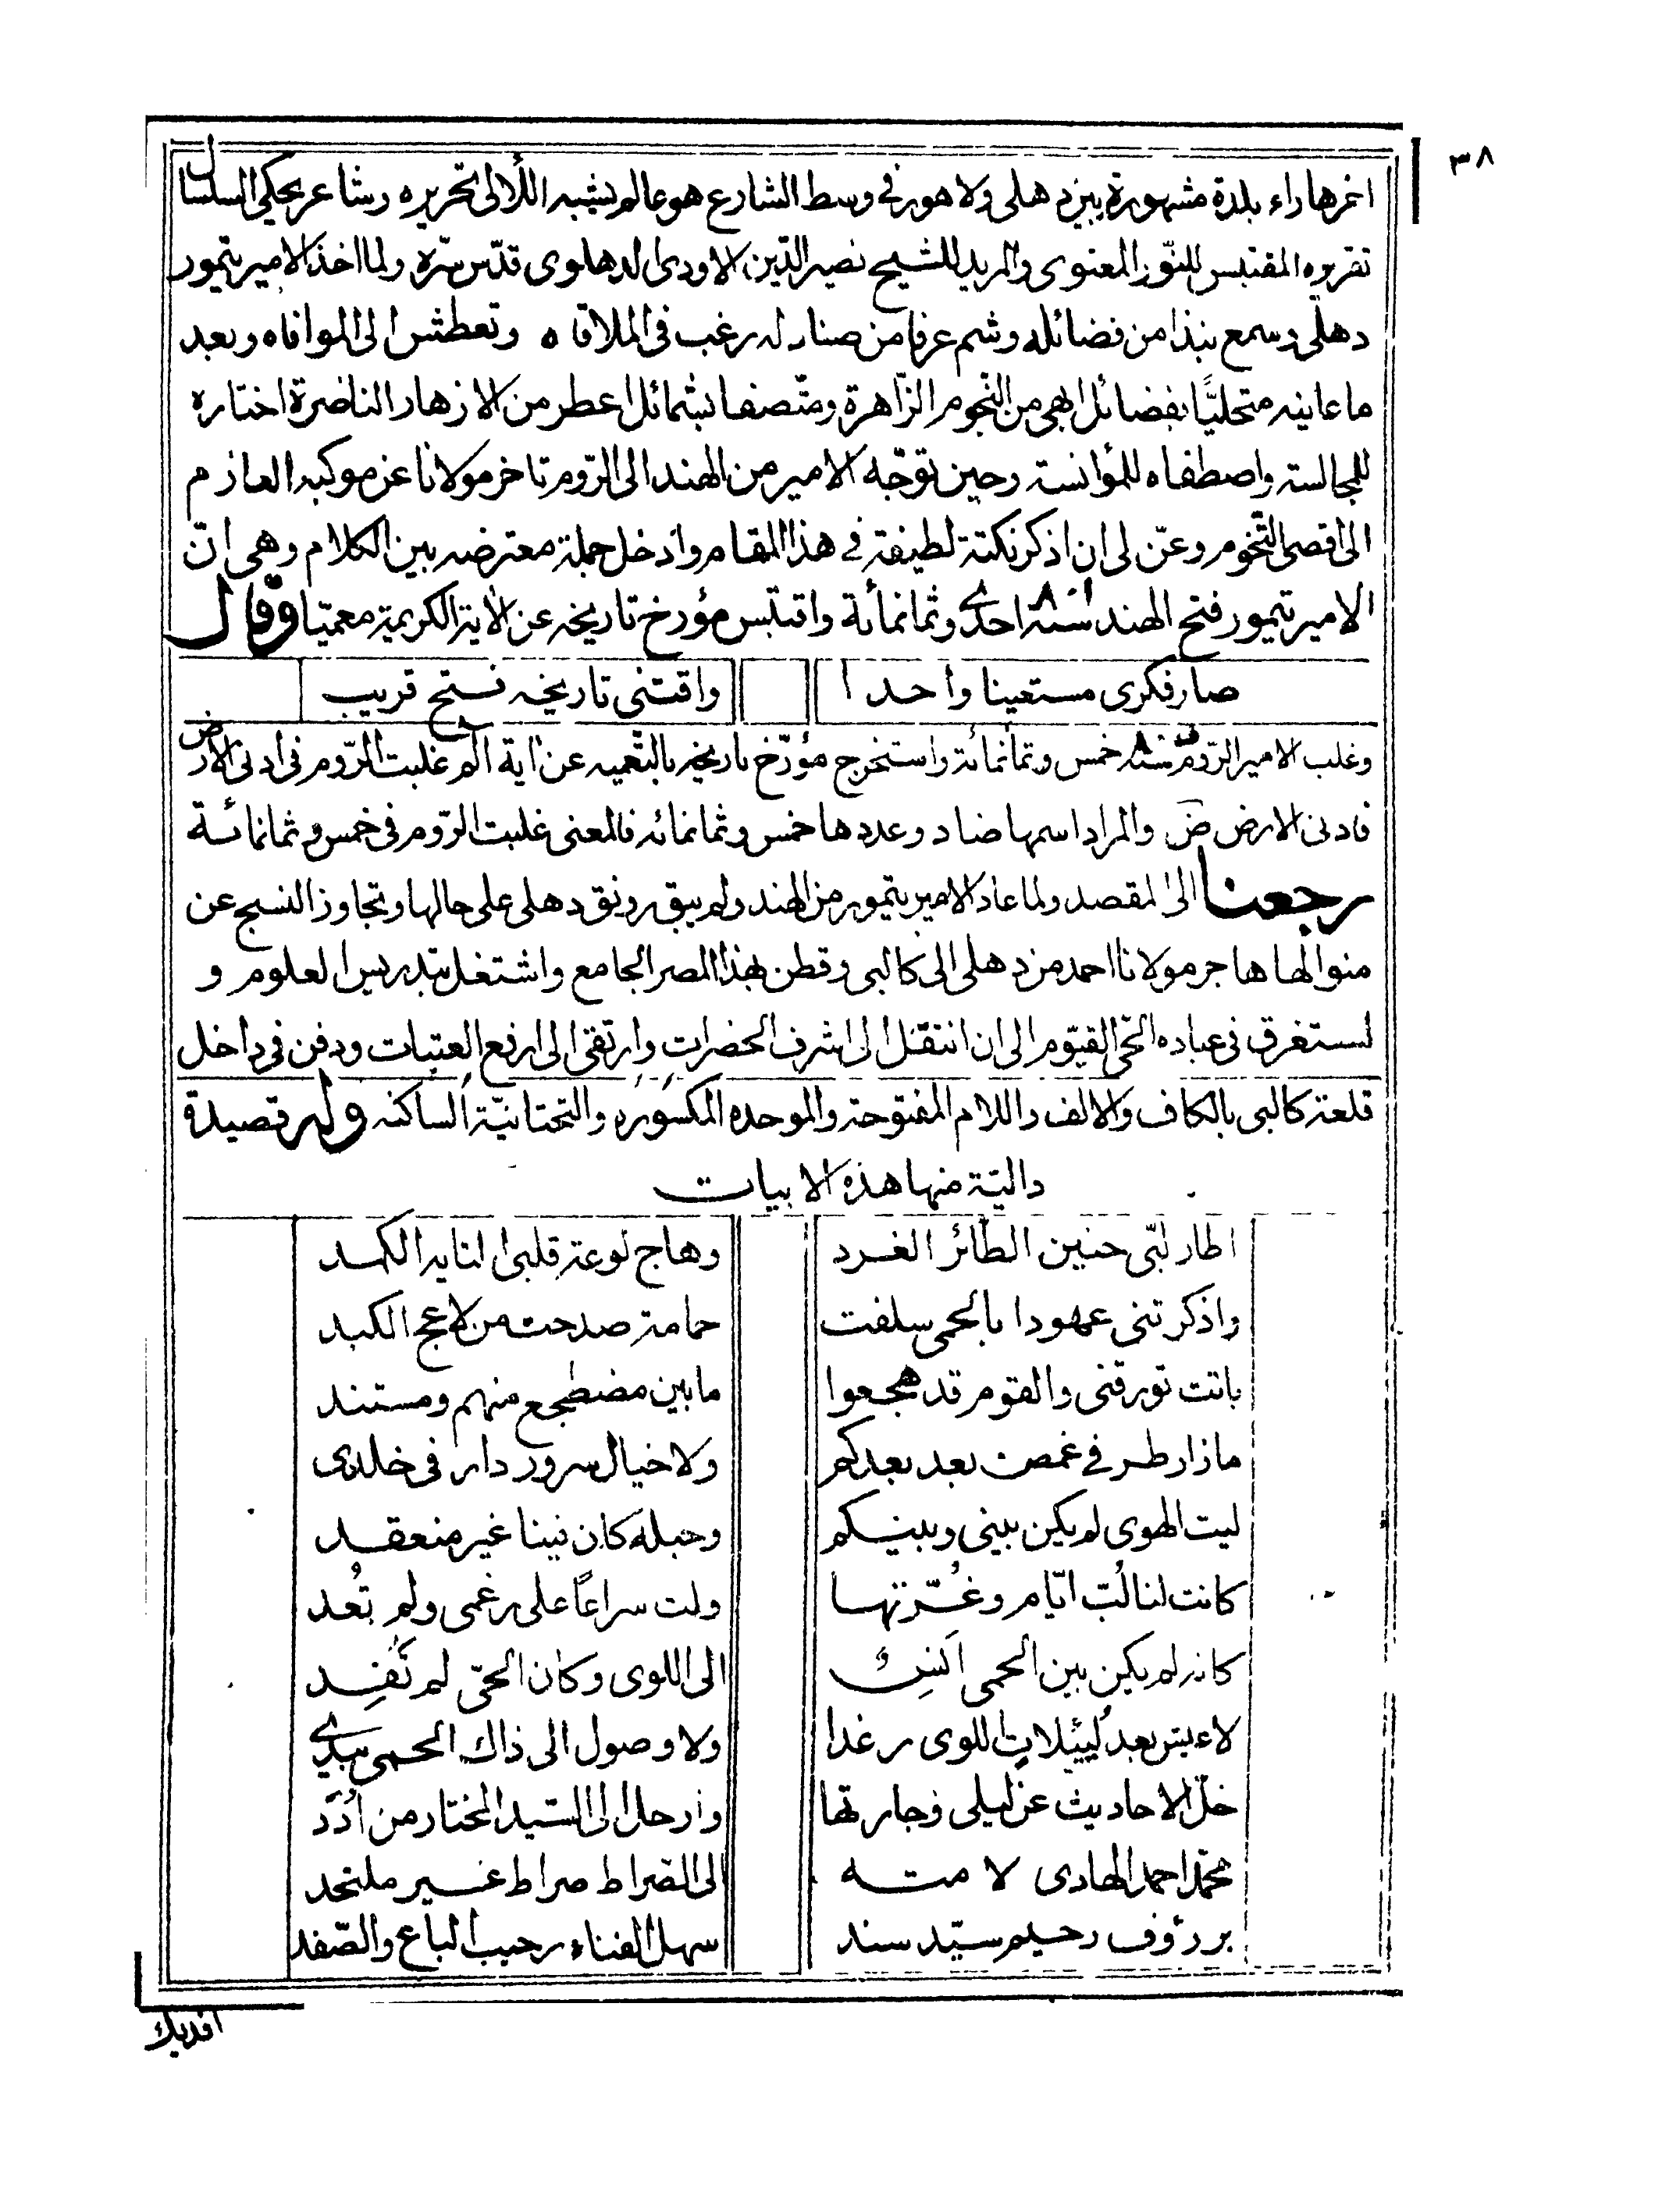 ٣٨
اخرهاراء بلدة مشهورة بين دهلى ولاهور فى وسط الشارع هو عالم يشبه اللآلى تحريره وشاعر يحكى السلسال
تقريره المقتبس للنّور المعنوى والمريد للشيخ نصير الدّين الاودى الدهلوى قدّس سرّه ولما اخذ الامير تيمور
دهلى وسمع نبذا من فضائله وشم عرفا من صنادله رغب فى الملاقاه وتعطش الى الموافاه وبعد
ما عاينه متحليًّا بفضائل ابهى من النّجوم الزّاهرة ومتّصفا بشمائل اعطر من الازهار الناضرة اختاره
للمجالسته واصطفاه للمؤانسته وحين توجّه الامير من الهند الى الرّوم تاخر مولانا عن موكبه العازم
الى اقصى التّخوم وعنّ لى ان اذكر نكتة لطيفة فى هذا المقام وادخل جملة معترضه بين الكلام وهى انّ
الامير تيمور فتح الهند سنة ٨٠١ احدى وثمانمأئة واقتبس مؤرخ تاريخه عن الاية الكريمة معميّا وقال
صار فكرى مستعينا واحدا واقتنى تاريخه فتح قريب
وغلب الامير الرّوم سنة خمس وثمانمائة واستخرج مؤرّخ تاريخه بالتّعميه عن اية الم غلبت الرّوم فى ادنى الارض
فادنى الارض ض والمراد اسمها ضاد وعددها خمس وثمانمائه فالمعنى غلبت الرّوم فى خمس وثمانمائة
رجعنا الى المقصد ولما عاد الامير تيمور من الهند ولم يبق رونق دهلى على حالها وتجاوز النسج عن
منوالها هاجر مولانا احمد من دهلى الى كالبى وقطن بهذا المصر الجامع واشتغل بتدريس العلوم و
استغرق فى عباده الحىّ القيّوم الى ان انتقل الى اشرف الحضرات وارتقى الى ارفع العتبات ودفن فى داخل
قلعة كالبى بالكاف والالف واللام المفتوحة والموحده المكسوره والتحتانيّة الساكنه وله قصيدة
داليّة منها هذه الابيات
اطار لبّى حنين الطائر الغرد وهاج لوعة قلبى التايه الكمد
واذكرتنى عهودا بالحمى سلفت حمامة صدحت من لاعج الكبد
باتت تورقنى والقوم قد هجعوا ما بين مضطجع منهم ومستند
ما زار طر فى غمض بعد بعدكم ولا خيال سرور دار فى خلدى
ليت الهوى لم يكن بينى وبينكم وحبله كان نينا غير منعقد
كانت لنا لُبّ ايّام وغُرّتها ولت سراعًا على رغمى ولم تعُد
كانه لم يكن بين الحمى الى اللوى وكان الحىّ لم نَفِد
لاعيش بعد لييلات اللوى رغدا ولا وصول الى ذاك الحمى بيدى
خلّ الاحاديث عن ليلى وجارتها وارحل الى السّيد المختار من اُدَد
محمّد احمد الهادى لامته الى الصّراط صراط غير ملتحد
بر رؤف رحيم سيّد سند سهل الفناء رحيب الباع والصّفد
افديك